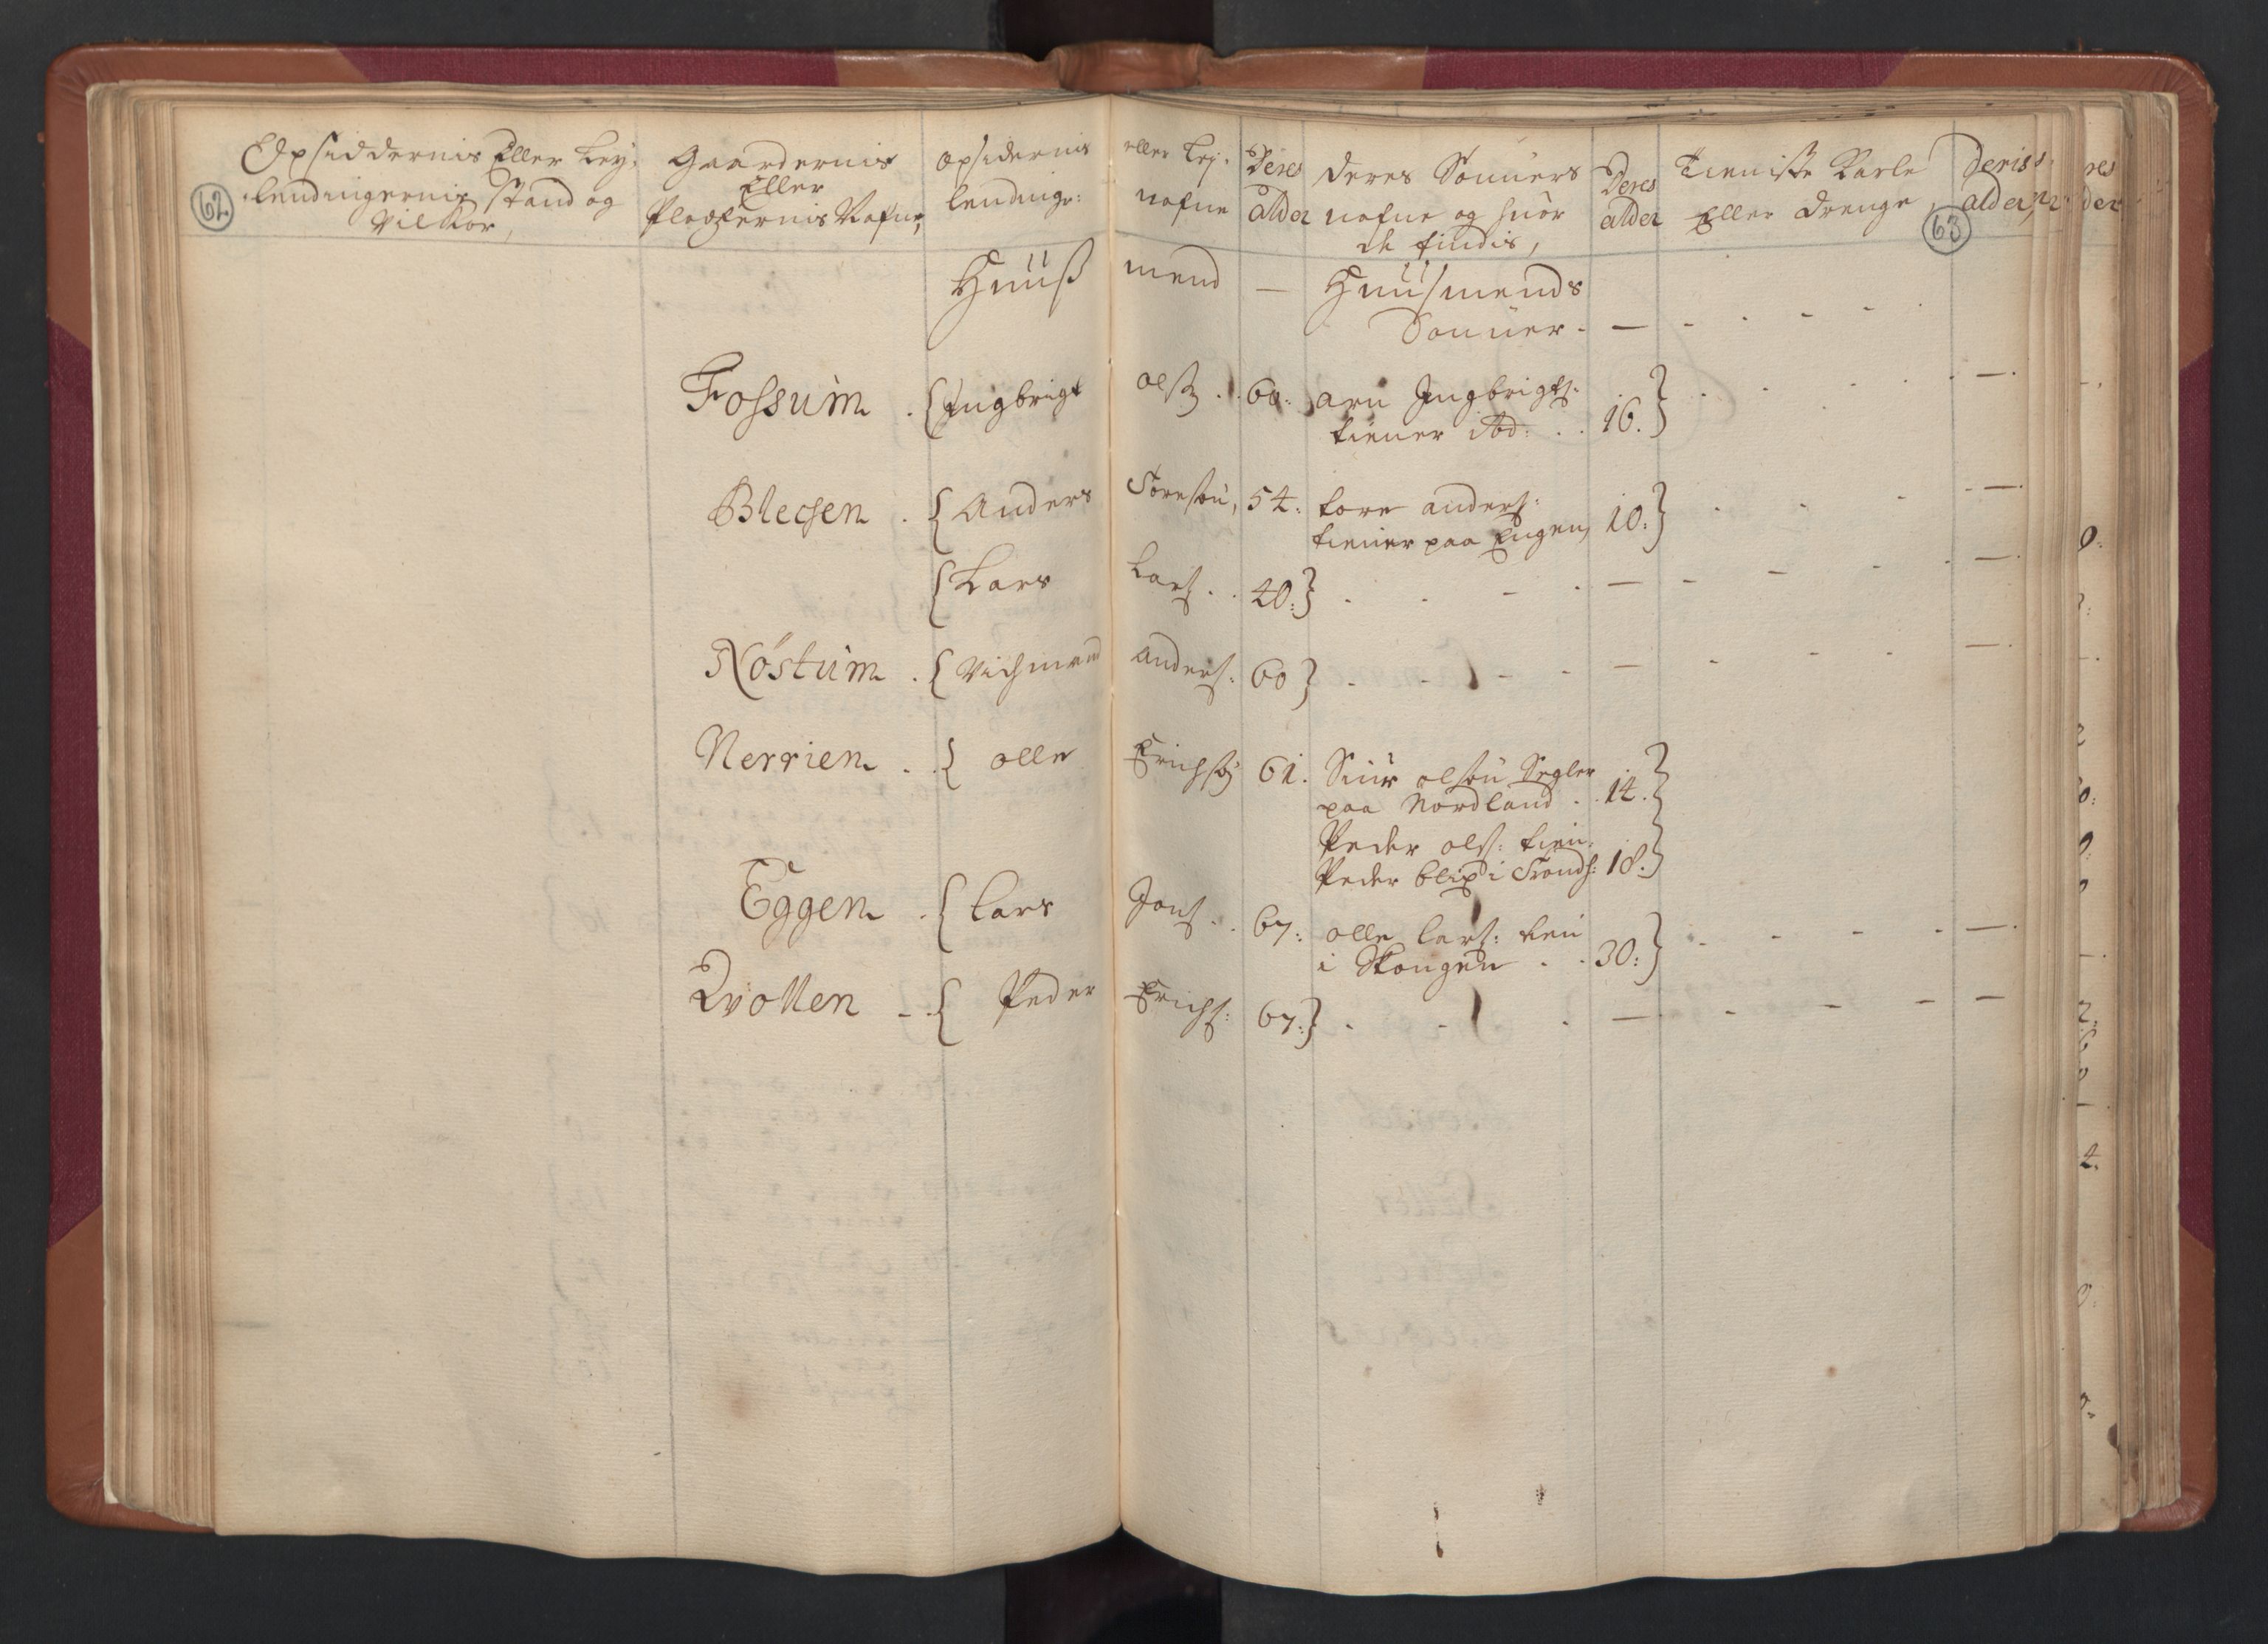 62
Opsiddernis Eller Ley-
lendingernis stand og
Vilkor,
Gaardernis
Eller
Pladzernis Nafne,
opsidernis eller Ley-
lendinge: nafne
Deres
alder
deres Sønners
nafne og huor
de findis,
Deres
alder
Tieniste Karle
Eller drenge,
deris
alder,
63
Huuß mend — Huusmends
Sønner - —
Fossum . { Ingbrigt olß . . 60: arn Ingbrigts:
tiener ibd: . . 16. }
Blechen . { Anders Toresøn, 54: tore anders:
tiener paa Engen, 10: }
{ Lars Lars . . 40: } —
Nøstum . { Vichmand anders: 60 } —
Nerrien . . { olle Erichsø 61. Siur olsøn Segler
paa Nordland . . 14. }
Peder ols: tien:
Peder blix i Trondh: 18. }
Eggen . { Lars Jons . . 67: olle lars: tien
i Skongen . . 30: }
Qvollen - . { Peder Erichs: 67: } —